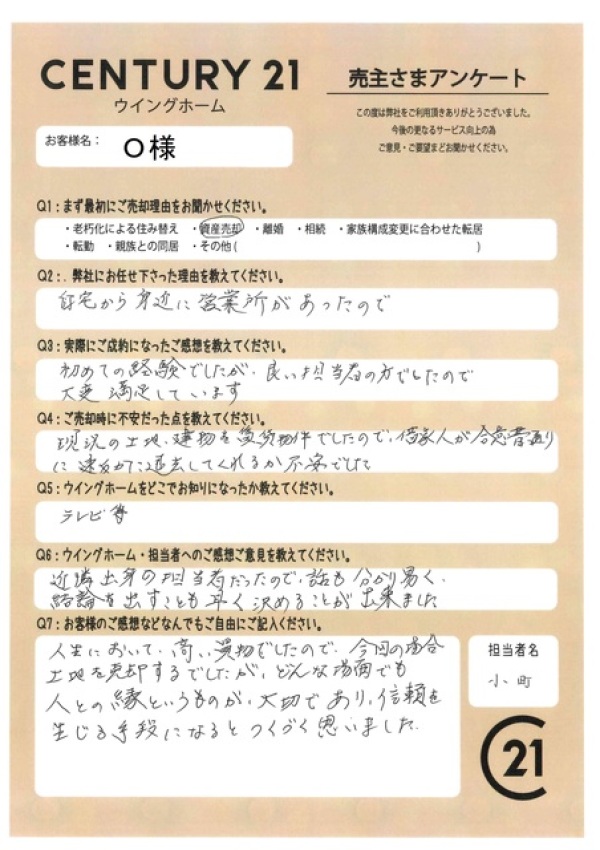 CENTURY 21
ウイングホーム
売主さまアンケート
この度は弊社をご利用頂きありがとうございました。
今後の更なるサービス向上の為
ご意見・ご要望までお聞かせください。
お客様名： O様
Q1：まず最初にご売却理由をお聞かせください。
・老朽化による住み替え ・資産売却 ・離婚 ・相続 ・家族構成変更に合わせた転居
・転勤 ・親族との同居 ・その他( )
Q2：．弊社にお任せ下さった理由を教えてください。
自宅から身近に営業所があったので
Q3：実際にご成約になったご感想を教えてください。
初めての経験でしたが、良い担当者の方でしたので
大変満足しています
Q4：ご売却時に不安だった点を教えてください。
現況の土地、建物を賃貸物件でしたので、借家人が合意書通り
に速やかに退去してくれるか不安でした
Q5：ウイングホームをどこでお知りになったか教えてください。
テレビ等
Q6：ウイングホーム・担当者へのご感想ご意見を教えてください。
近隣出身の担当者だったので、話も分かり易く、
結論を出すことも早く決めることが出来ました
Q7：お客様のご感想などなんでもご自由にご記入ください。
人生において、高い買物でしたので、今回の場合
土地を売却するでしたが、どんな場面でも
人との縁というものが、大切であり、信頼を
生じる手段になるとつくづく思いました。
担当者名
小町
21